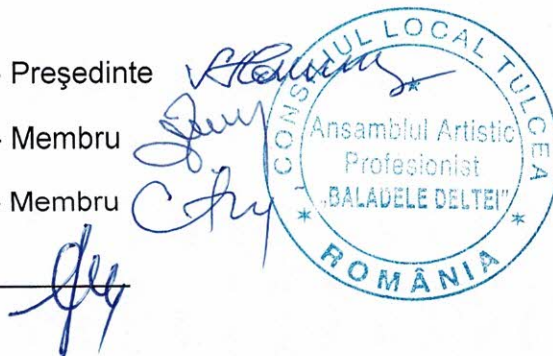 - Preşedinte
- Membru
- Membru
CONSILIUL LOCAL TULCEA
Ansamblul Artistic
Profesionist
„BALADELE DELTEI”
* ROMÂNIA *